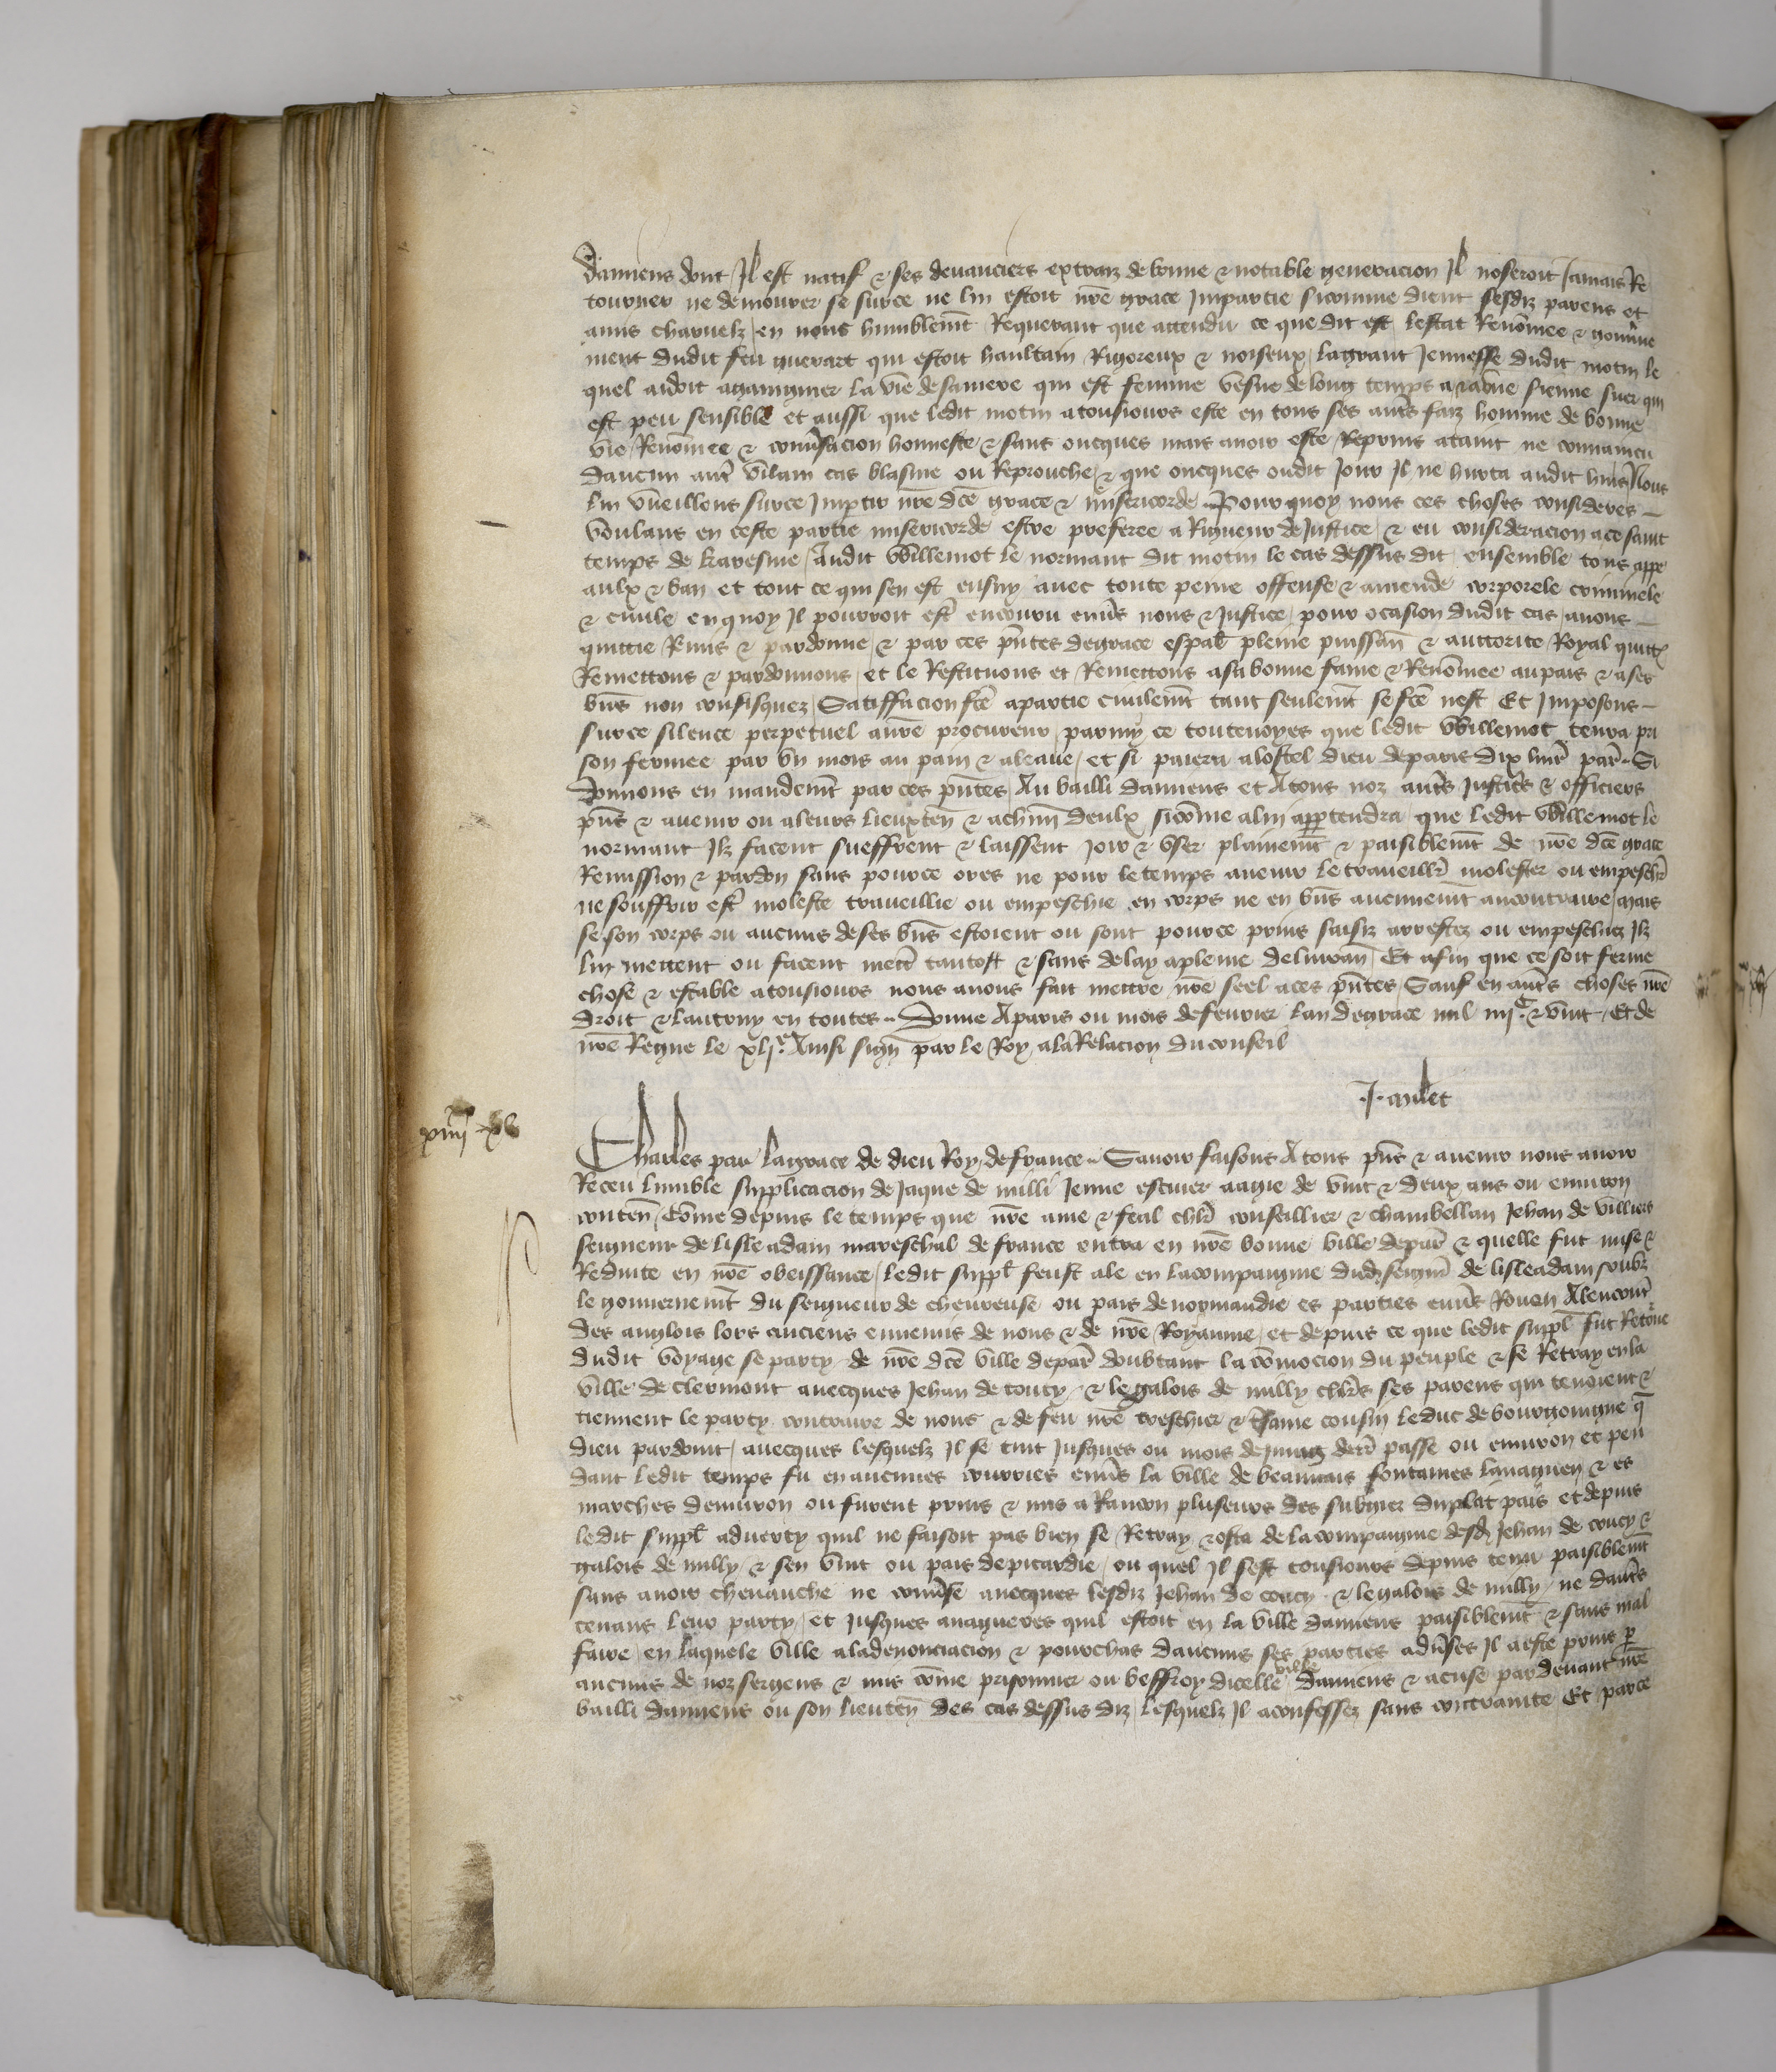 damiens dont Il est natif & ses deuanciers extraiz de bonne & notable generacion Il noseroit Jamais Re
tourner ne demourer se surce ne lui estoit nre grace Impartie sicomme dient sesdiz parens et
amis charnelz en nous humblemt Requerant que attendu ce que dit est lestat Renomee &
ment dudit feu guerart qui estoit haultain Rigoreux & noiseux lagrant Jennesse dudit motin le
quel aidoit againgnier la vie de samere qui est femme vesue de long temps a & a vne sienne suer qui
est peu sensible et aussi que ledit motin atousiours este en tous ses autrs faiz homme de bonne
vie Renomee & conusacion honneste & sans oncques mais auoir este Reprins ataint ne conuaincu
daucun autr vilain cas blasme ou Reprouche & que oncques oudit Jour Il ne hurta audit huis Nous
lui vueillons surce Impartir nre dce grace & misericorde Pourquoy nous ces choses considerees
voulans en ceste partie misericorde estre preferee a Rigueur de Justice & en consideracion ace saint
temps de karesme Audit Willemot le normant dit motin le cas dessus dit ensemble tous appe
aulx & ban et tout ce qui sen est ensuy auec toute peine offense & amende corporele criminele
& ciuile enquoy Il pourroit estr encouru enuers nous & Justice pour ocasion dudit cas auons
quittie Remis & pardonne & par ces pntes degrace espal pleine puissan & auctorite Royal quitt
Remettons & pardonnons et le Restituons et Remettons asa bonne fame & Renomee aupais & ases
bns non confisquez Satiffacion fce apartie ciuilemt tant seulemt se fce nest Et Imposons
surce silence perpetuel anre procureur parmy ce toutenoyes que ledit Willemot tenra pri
son fermee par vn mois au pain & aleaue et si paiera alostel dieu deparis dix liurs par Si
donnons en mandemt par ces pntes Au bailli damiens et Atous noz autrs Justicrs & officiers
pns & auenir ou aleurs lieuxten & achun deulx sicome alui appartendra que ledit Willemot le
normant Ilz facent sueffrent & laissent joir & vser plainemt & paisiblemt de nre dce grace
Remission & pardon sans pource ores ne pour letemps auenir le traueillr molester ou empeschr
ne souffrir estr moleste traueillie ou empeschie en corps ne en bns aucunemt aucontraire mais
se son corps ou aucuns deses bns estoient ou sont pource prins saisiz arrestez ou empeschiez Ilz
lui mettent ou facent mettr tantost & sans delay apleine deliuran Et afin que ce soit ferme
chose & estable atousiours nous auons fait mettre nre seel aces pntes Sauf en autrs choses nre
droit & lautruy en toutes Donne Aparis ou mois defeurier lan degrace mil iiijc & vint Et de
nre Regne le xlje Ainsi sign par le Roy alaRelacion duconseil
J. aulet
Charles par lagrace de dieu Roy defrance Sauoir faisons Atous pns & auenir nous auoir
Receu lumble supplicacion de Jaque de milli Jenne escuier aagie de vint & deux ans ou enuiron
conten Come depuis le temps que nre ame & feal chlr conseillier & chambellan Jehan de villiers
seigneur de lisle adam mareschal de france entra en nre bonne ville depar & quelle fut mise &
Reduite en nre obeissance ledit suppl feust ale en lacompaignie dud seignr de lisleadam soubz
le gouuernemt du seigneur de cheureuse ou pais denormandie es parties enuers Rouen Alencontr
des anglois lors anciens ennemis de nous & de nre Royaume et depuis ce que ledit suppl fut Retourne
dudit voyage se party de nre dce ville depar doubtant la comocion du peuple & se Retray enla
ville de clermont auecques Jehan de coucy & le galois de milly chlrs ses parens qui tenoient &
tiennent le party contraire de nous & de feu nre treschier & tsame cousin leduc debourgoingne q
dieu pardoint auecques lesquelz Il se tint Jusques ou mois de derr passe ou enuiron et pen
dant ledit temps fu enaucunes courries enuers la ville de beauuais fontaines lauaguen & es
marches denuiron ou furent prins & mis a Rancon pluseurs des subgiez duplat pais et depuis
ledit suppl aduerty quil ne faisoit pas bien se Retray & osta de lacompaignie desd Jehan de coucy &
galois de milly & sen vint ou pais depicardie ou quel Il sest tousiours depuis tenu paisiblemt
sans auoir cheuauche ne conuse auecques lesdiz Jehan de coucy & legalois de milly ne dautrs
tenans leur party et Jusques anagueres quil estoit en la ville damiens paisiblemt & sans mal
faire en laquele ville aladenonciacion & pourchas daucuns ses parties aduses Il aeste prins p
aucuns de noz sergens & mis come prisonnier ou beffroy dicelle ville damiens & acuse pardeuant nre
bailli damiens ou son lieuten des cas dessus diz lesquelz Il aconfessez sans contrainte Et parce